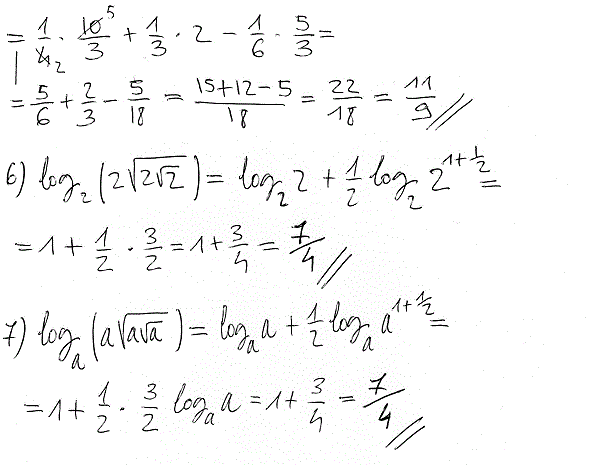 = 1/4₂ · 10⁵/3 + 1/3 · 2 − 1/6 · 5/3 =
= 5/6 + 2/3 − 5/18 = (15+12−5)/18 = 22/18 = 11/9 //
6) log₂(2√(2√2)) = log₂2 + 1/2 log₂2^(1+1/2) =
= 1 + 1/2 · 3/2 = 1 + 3/4 = 7/4 //
7) logₐ(a√(a√a)) = logₐa + 1/2 logₐa^(1+1/2) =
= 1 + 1/2 · 3/2 logₐa = 1 + 3/4 = 7/4 //